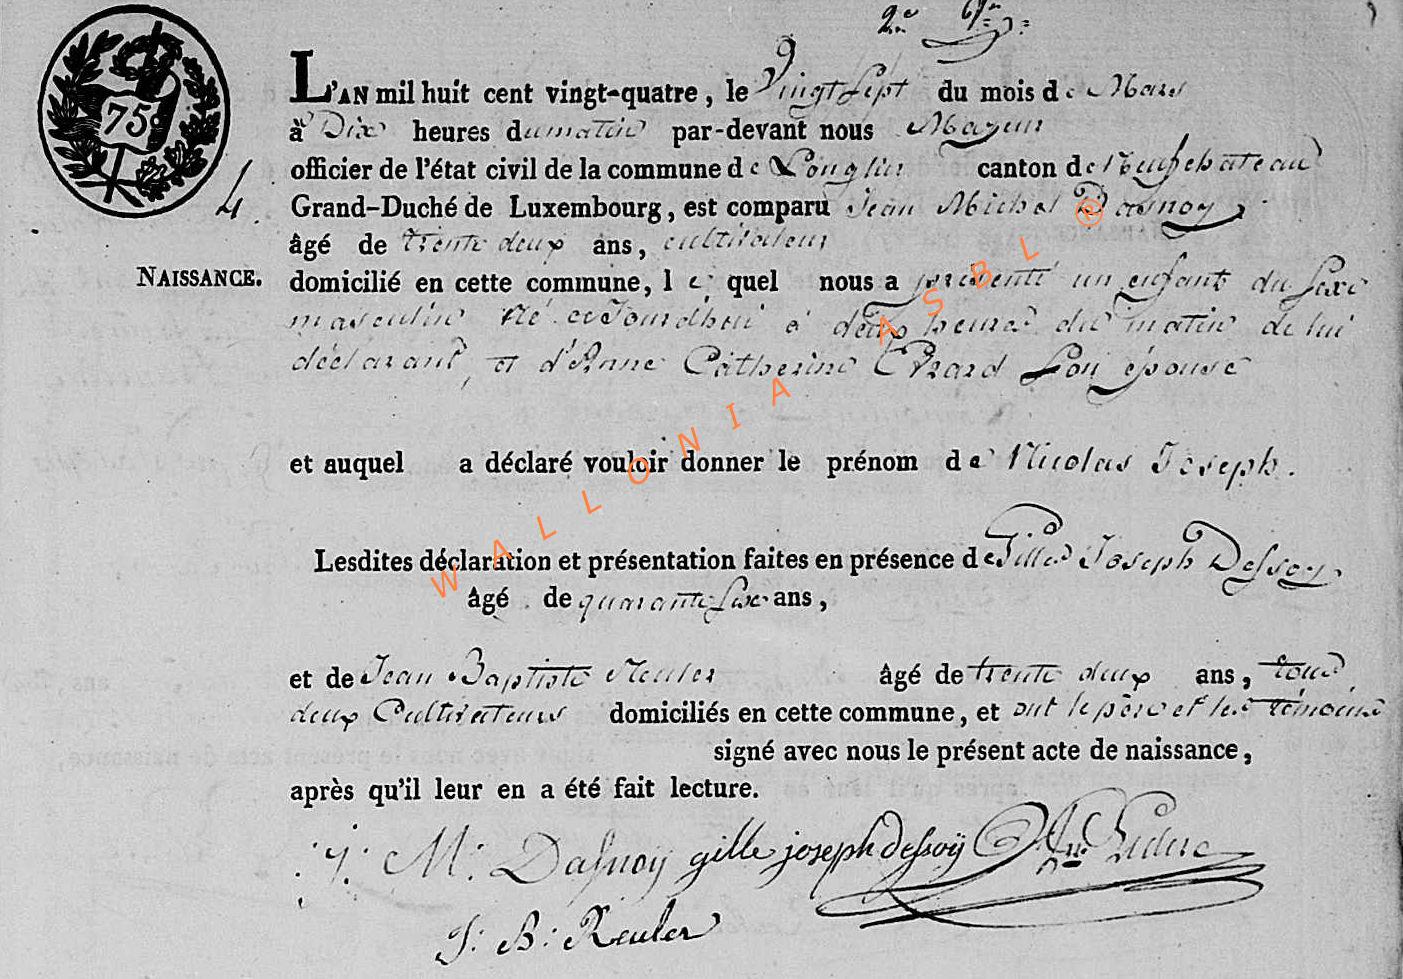 75c
4.
NAISSANCE.
L'AN mil huit cent vingt-quatre, le Vingt Sept du mois de Mars
à Dix heures du matin par-devant nous Mayeur
officier de l'état civil de la commune de Longlier canton de Neufchateau
Grand-Duché de Luxembourg, est comparu Jean Michel Dasnoy
âgé de trente deux ans, cultivateur
domicilié en cette commune, lequel nous a présenté un enfant du Sexe
masculin né cejourdhui à deux heures du matin de lui
déclarant, et d'Anne Catherine Evrard Son épouse
et auquel a déclaré vouloir donner le prénom de Nicolas Joseph.
Lesdites déclaration et présentation faites en présence de Gille Joseph Dessoy
âgé de quarante Six ans,
et de Jean Baptiste Reuler âgé de trente deux ans, tous
deux Cultivateurs domiciliés en cette commune, et ont le père et les témoins
signé avec nous le présent acte de naissance,
après qu'il leur en a été fait lecture.
J: M: Dasnoy gille joseph dessoÿ
J: B: Reuler
WALLONIA ASBL ®